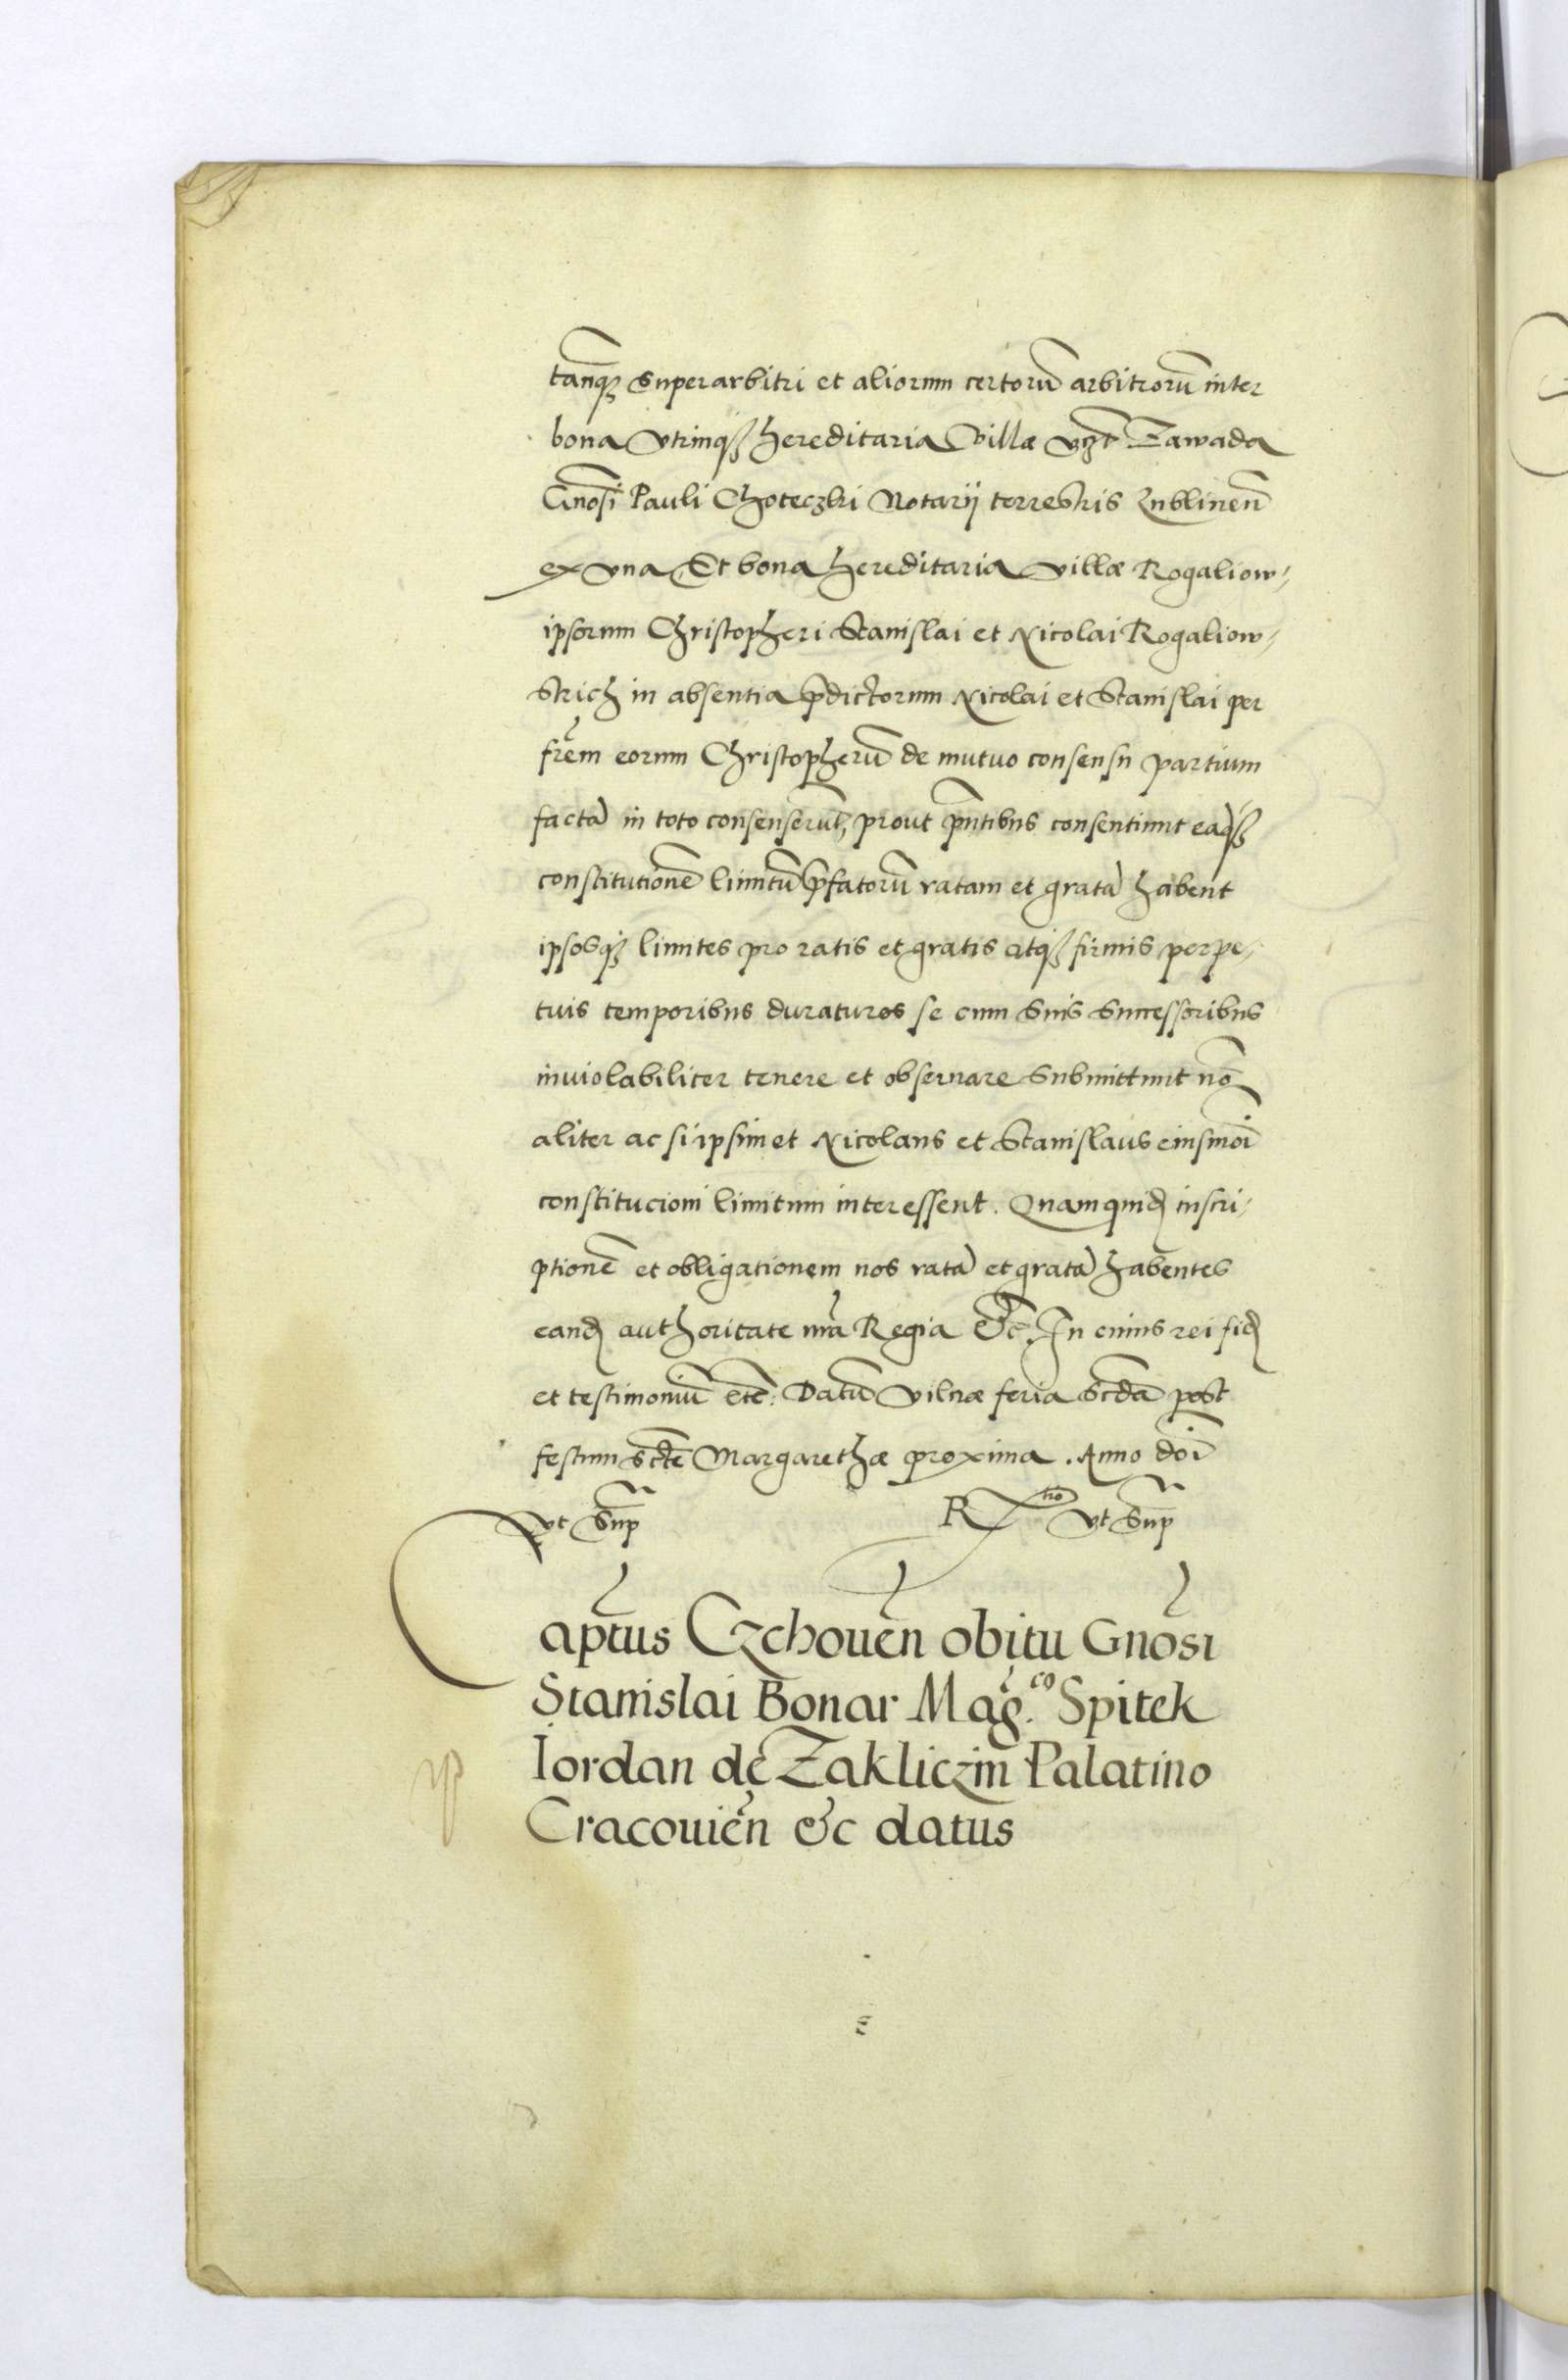 tanq̃ superarbitri et aliorum certorũ arbitrorũ inter
bona vtrinq₃ hereditaria Villæ vzt Zawada
Gnosi Pauli Choteczki Notarij terrestris Lublinen̄
ex vna Et bona hereditaria villæ Rogaliow-
ipsorum Christopheri Stanislai et Nicolai Rogaliow-
skich in absentia p̄dictorum Nicolai et Stanislai per
frēm eorum Christopherũ de mutuo consensu partium
factā in toto consenserũt, prout p̄ntibus consentiunt eāq₃
constitutionē limitũ p̄fatorũ ratam et gratā habent
ipsosq₃ limites pro ratis et gratis atq₃ firmis perpe-
tuis temporibus duraturos se cum suis successoribus
inuiolabiliter tenere et obseruare submittunt nō
aliter ac si ipsimet Nicolaus et Stanislaus eiusmōi
constitucioni limitum interessent. Quamquid̄ inscri-
ptionē et obligationem nos ratā et gratā habentes
eand̄ authoritate nr̄a Regia &c̄. In cuius rei fid̄
et testimoniũ etc̄: Datũ Vilnæ feria scdā post
festum sctē Margarethæ proxima. Anno dōi
vt Sup̄
R^tio vt Sup̄
Captus Czchouen̄ obitu Gnōsi
Stanislai Bonar Mag.^co Spitek
Iordan de Zakliczin Palatino
Cracouien̄ &c datus